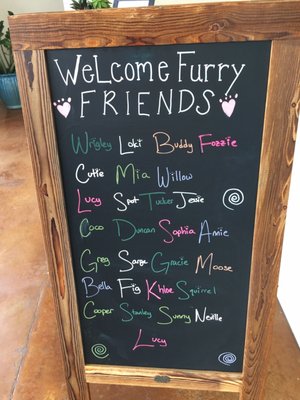 WeLcome Furry
FRIENDS
Wrigley Loki Buddy Fozzie
Cutie Mia Willow
Lucy Spot Tucker Josie
Coco Duncan Sophia Annie
Greg Sarge Gracie Moose
Bella Fig Khloe Squirrel
Cooper Stanley Sunny Neville
Lucy